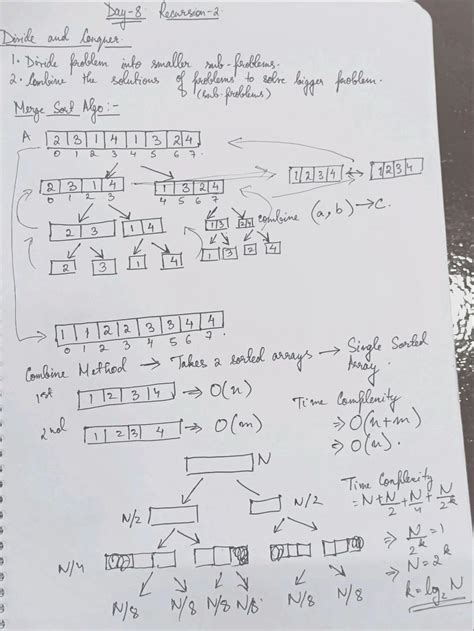 Day-8 Recursion-2
Divide and Conquer.
1. Divide problem into smaller sub-problems.
2. Combine the solutions of problems to solve bigger problem.
(sub-problems)
Merge Sort Algo:-
A 2 3 1 4 1 3 2 4
0 1 2 3 4 5 6 7
1 2 3 4 ↔ 1 2 3 4
2 3 1 4 → 1 3 2 4
0 1 2 3 4 5 6 7
2 3 1 4 1 3 2 4 combine (a, b) → c.
2 3 1 4 1 3 2 4
1 1 2 2 3 3 4 4
0 1 2 3 4 5 6 7
Combine Method → Takes 2 sorted arrays → Single Sorted Array.
1st 1 2 3 4 ⇒ O(n)
2nd 1 2 3 4 ⇒ O(m)
Time Complenity
⇒ O(n+m)
⇒ O(n).
N
N/2 N/2
N/4
N/8 N/8 N/8 N/8 N/8 N/8
Time Complenity
= N + N/2 + N/4 + N/2^k
⇒ N/2^k = 1
⇒ N = 2^k
k = log₂ N